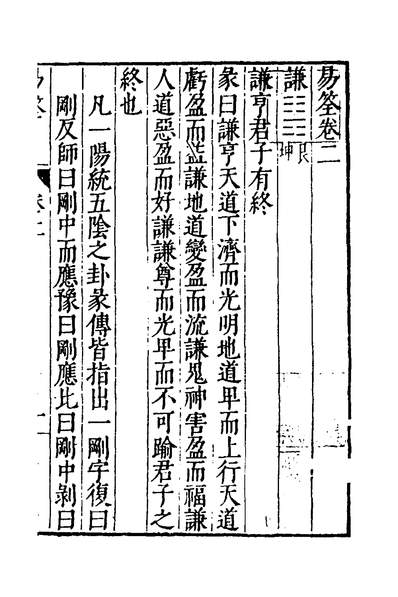 易筌卷二
謙䷎艮坤
謙亨君子有終
彖曰謙亨天道下濟而光明地道卑而上行天道
虧盈而益謙地道變盈而流謙鬼神害盈而福謙
人道惡盈而好謙謙尊而光卑而不可踰君子之
終也
凡一陽統五陰之卦彖傳皆指出一剛字復曰
剛反師曰剛中而應豫曰剛應比曰剛中剝曰